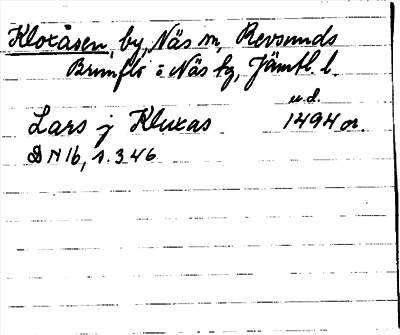 Klotåsen, by, Näs sn, Revsunds
Brunflo o Näs tg, Jämtl. l.
u.d.
Lars j Kluxas 1494 or.
DN 16, s. 346